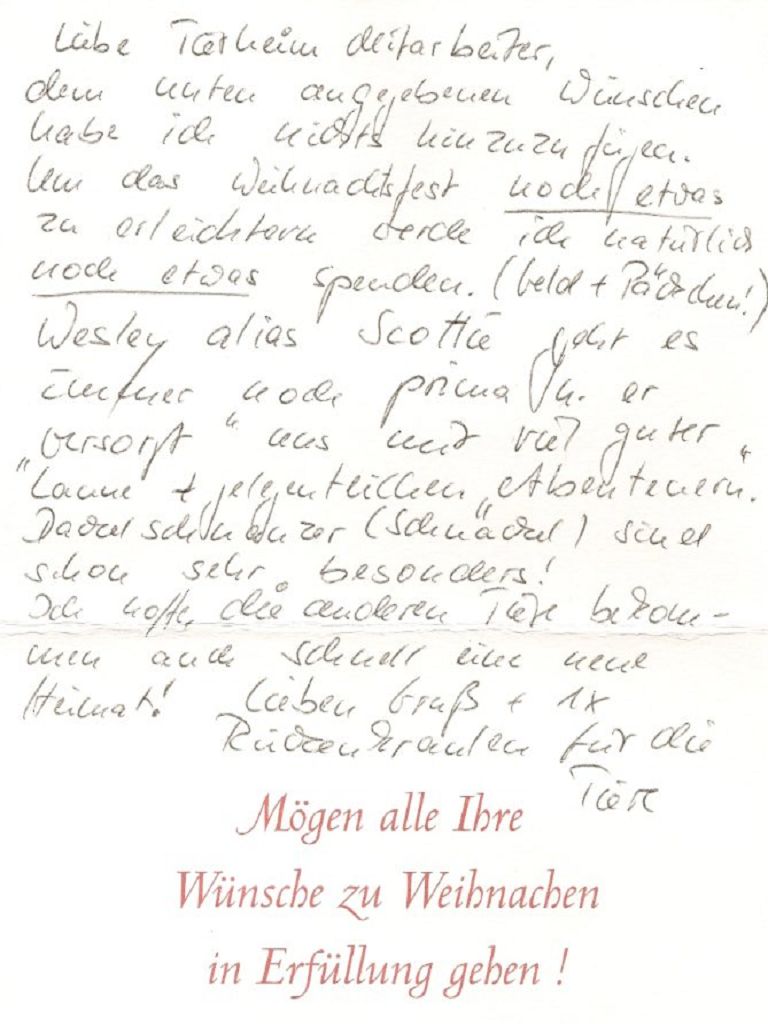 Liebe Tierheim Mitarbeiter,
dem unten angegebenen Wünschen
habe ich nichts hinzuzufügen.
Um das Weihnachtsfest noch etwas
zu erleichtern werde ich natürlich
noch etwas spenden. (Geld + Päckchen!)
Wesley alias Scottie geht es
immer noch prima u. er
"versorgt" uns mit viel guter
"Laune" + gelegentlichen "Abenteuern".
Dackelschnauzer (Schnäckel) sind
schon sehr besonders!
Ich hoffe, die anderen Tiere bekom-
men auch schnell eine neue
Heimat! Lieben Gruß + 1x
Rückenkraulen für die
Tiere
Mögen alle Ihre
Wünsche zu Weihnachen
in Erfüllung gehen !